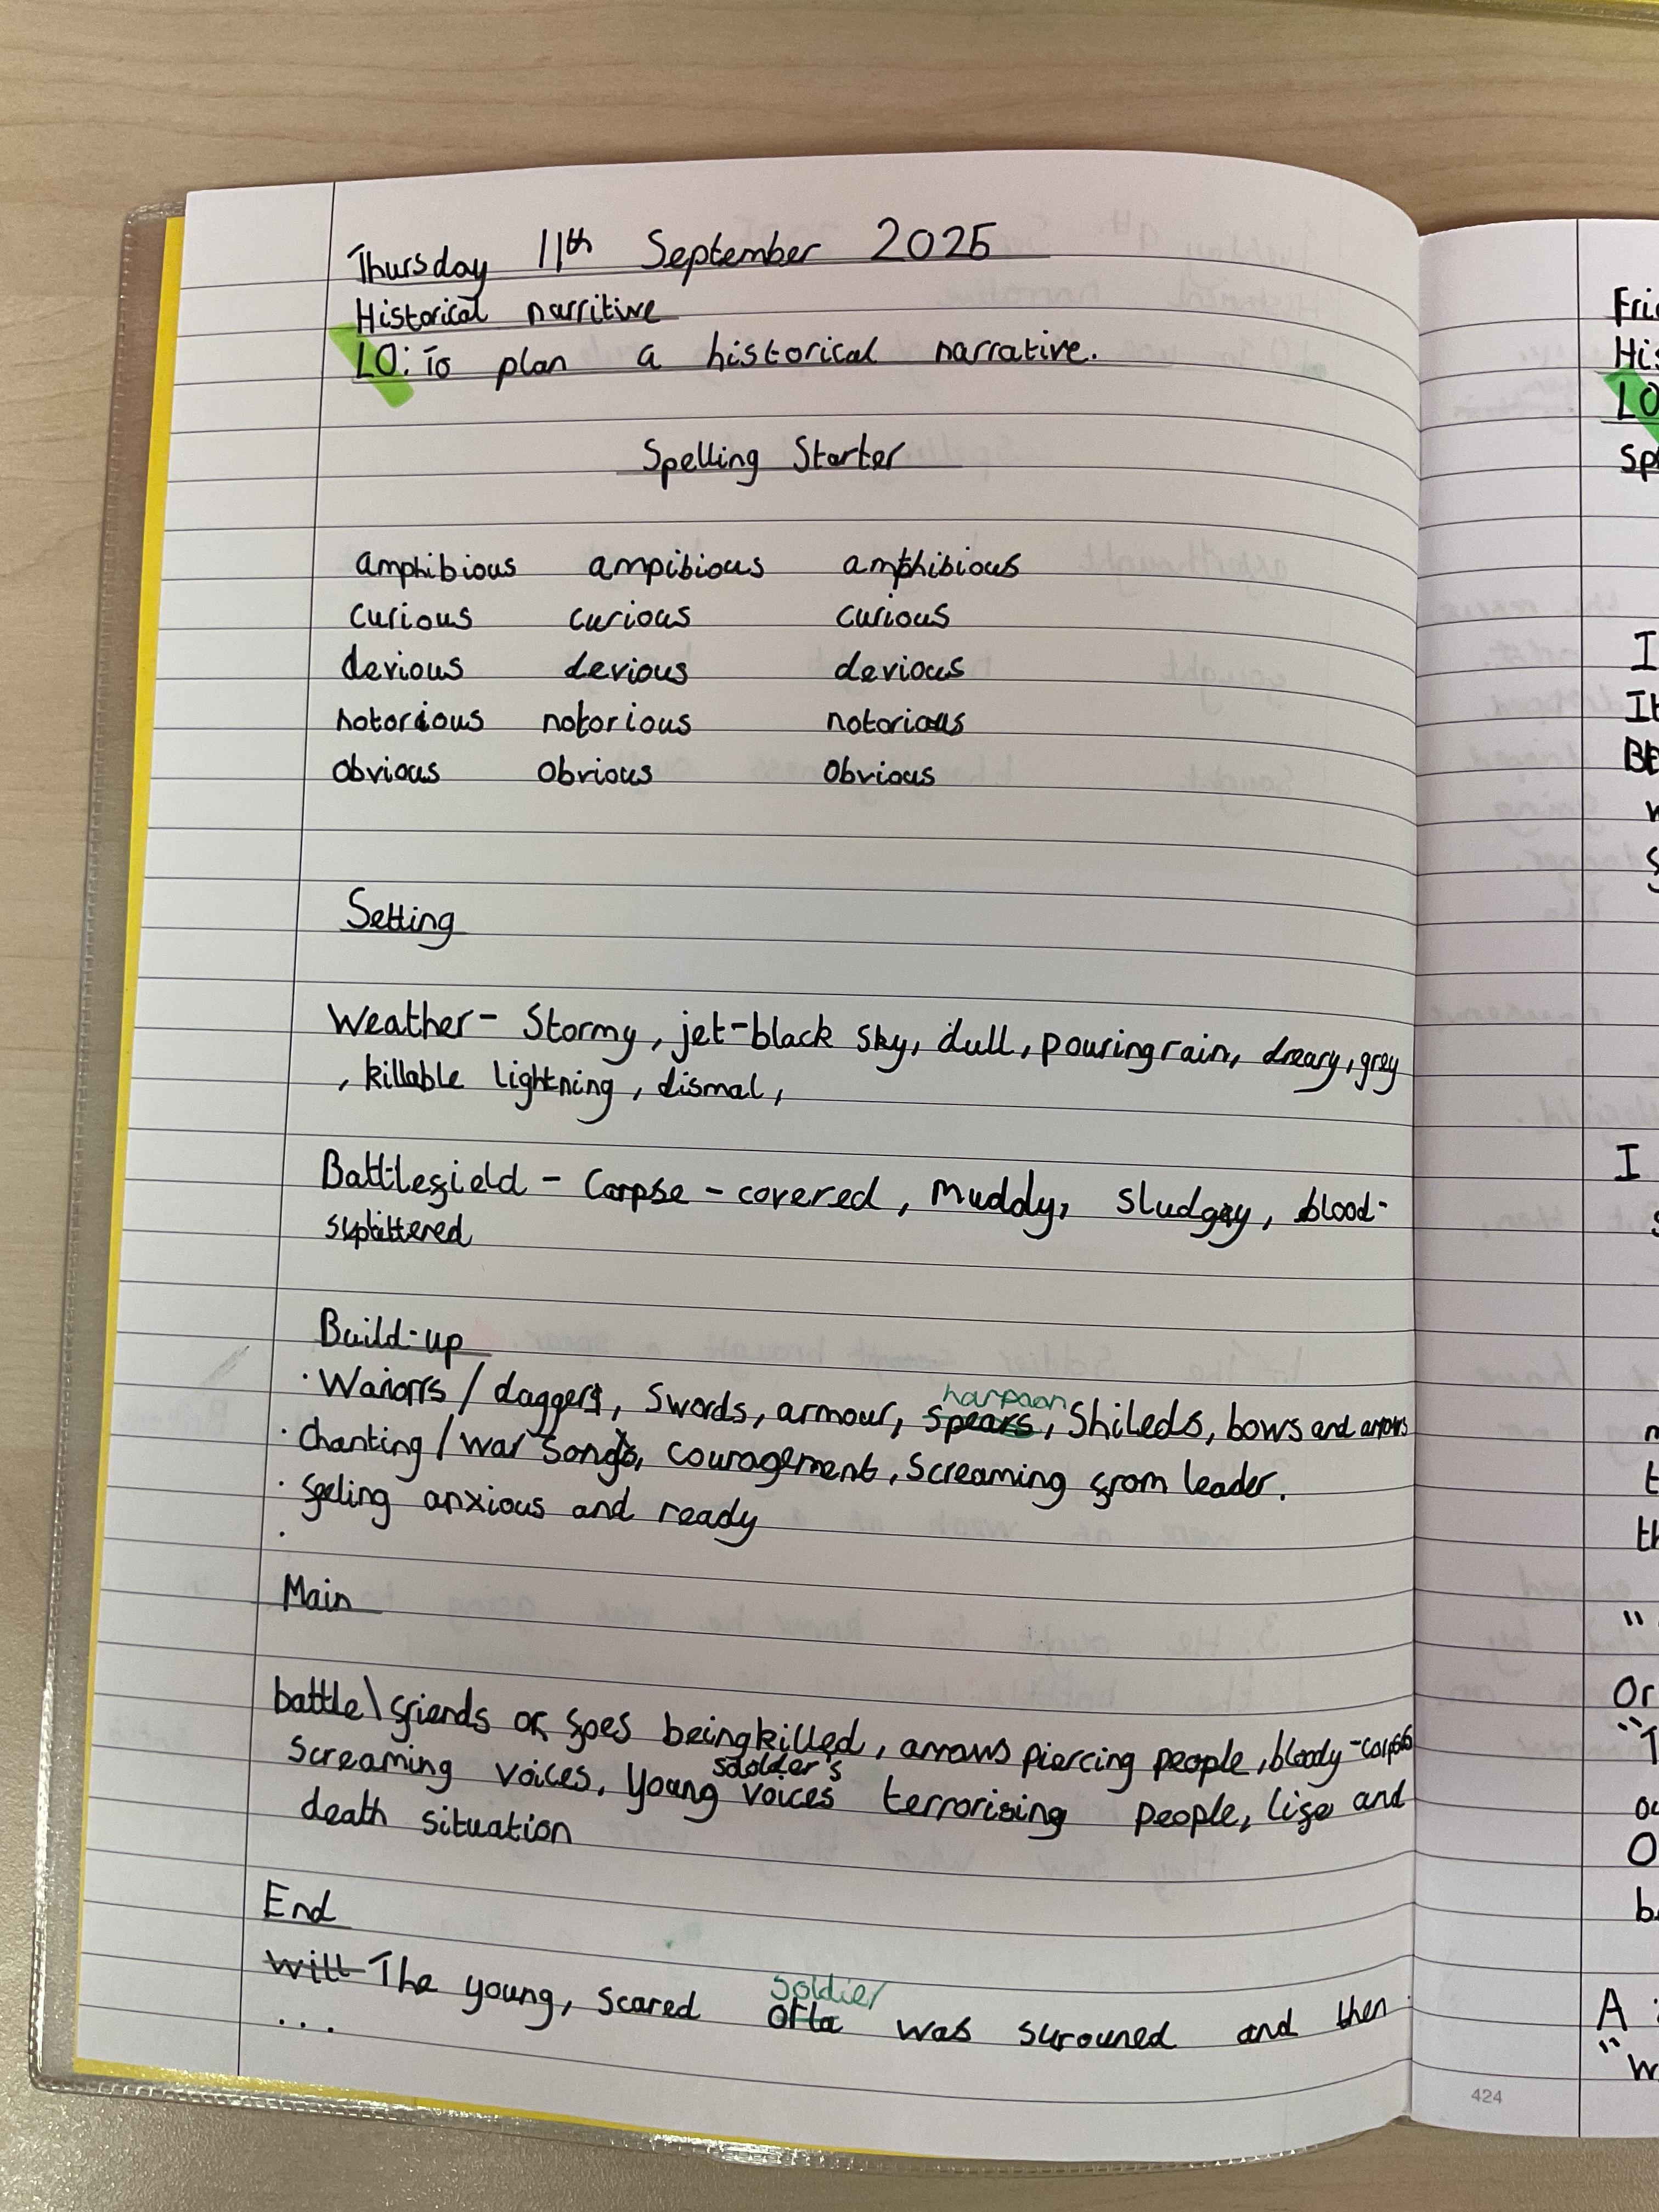 Thursday 11th September 2025
Historical narritive
LO: To plan a historical narrative.
Spelling Starter
amphibious ampibious amphibious
curious curious curious
devious devious devious
notorious notorious notorious
obvious obvious obvious
Setting
Weather- Stormy, jet-black sky, dull, pouring rain, dreary, grey
, killable lightning, dismal,
Battlefield - Corpse-covered, muddy, sludgey, blood-
splattered
Build-up
harpoon
· Wariorrs / daggers, Swords, armour, spears, Shileds, bows and arrows
· Chanting / war songs, couragement, screaming from leader.
· feeling anxious and ready
·
Main
battle \ friends or foes being killed, arrows piercing people, bloody-corpses
solder's
screaming voices, young voices terrorising people, life and
death situation
End
soldier
Will The young, scared Orla was surouned and then
...
Fri
His
LO
Sp
I
It
BE
w
I
m
t
th
"
Or
"T
ou
O
b
A
"W
424